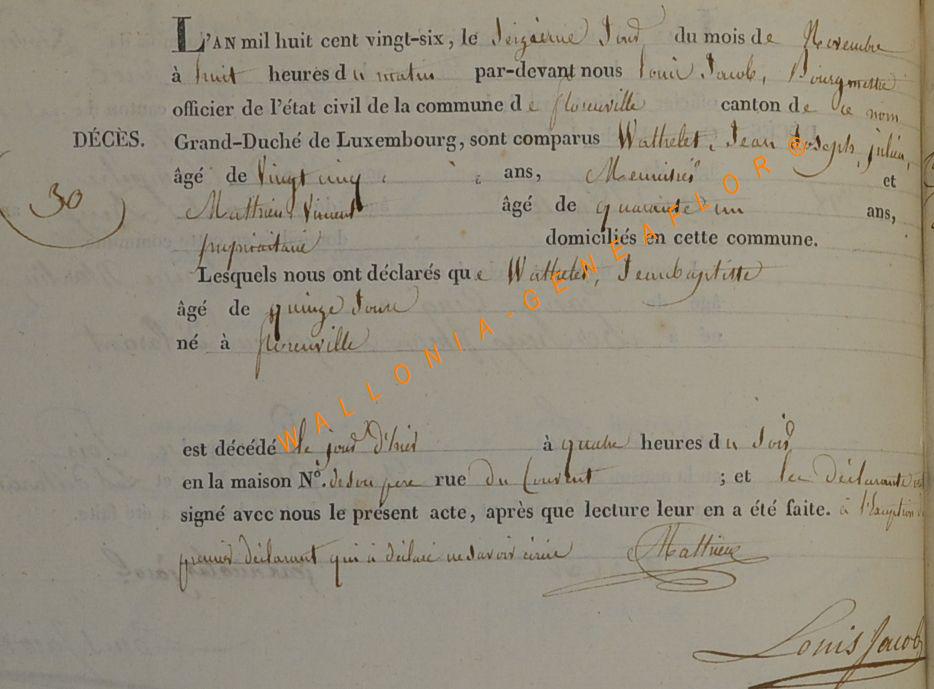 L'AN mil huit cent vingt-six, le Seizième Jour du mois de Novembre
à huit heures du matin par-devant nous Louis Jacob, Bourgmestre
officier de l'état civil de la commune de florenville canton de ce nom
DÉCÈS. Grand-Duché de Luxembourg, sont comparus Wathelet, Jean Joseph, julien,
âgé de Vingt cinq ans, Menuisier et
30
Mathieu Vincent âgé de quarante un ans,
propriaitaire domiciliés en cette commune.
Lesquels nous ont déclarés que Wathelet, Jeanbaptiste
âgé de quinze Jours
né à florenville
est décédé le jour d'hier à quatre heures du Soir
en la maison N.º de son pere rue du Couvent ; et les déclarants ont
signé avec nous le présent acte, après que lecture leur en a été faite. à l'Exception du
premier déclarant qui à déclaré ne savoir écrire Mathieu
Louis Jacob
WALLONIA-GENEAFLOR ©